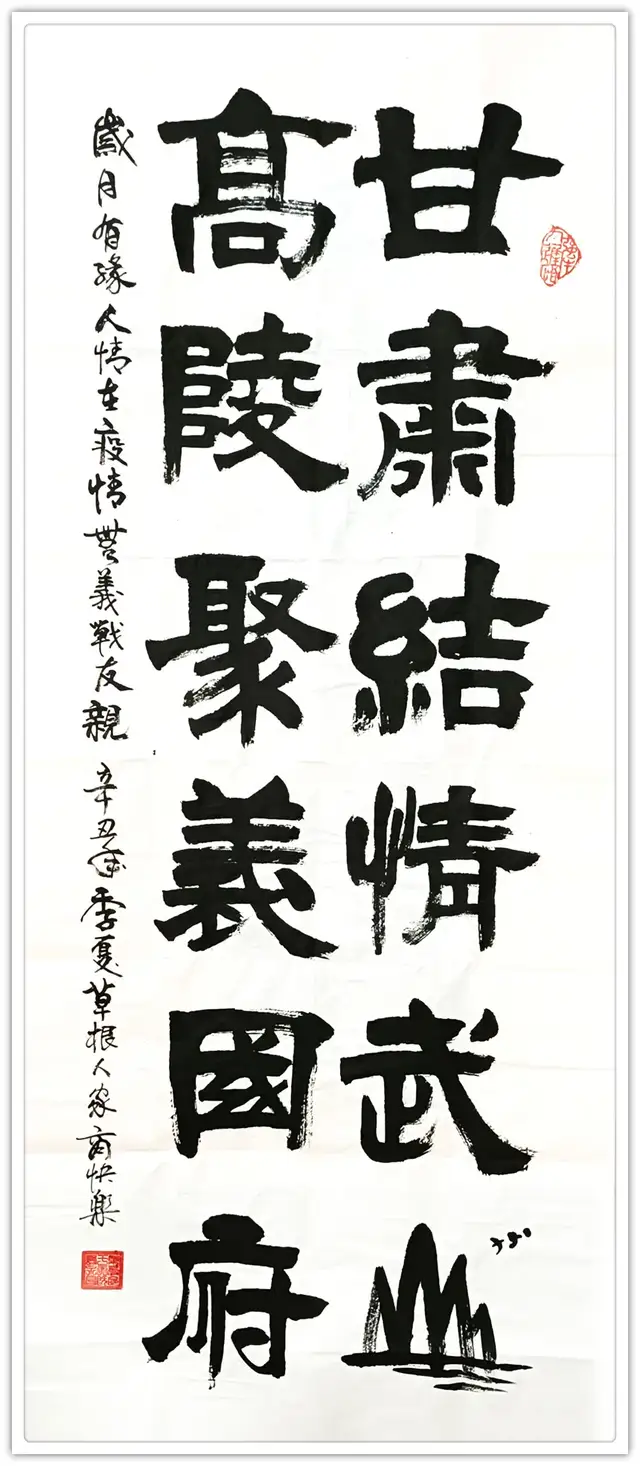 甘肅結情武山
高陵聚義國府
歲月有緣人情在疫情無義戰友親 辛丑年季夏草根人家商快樂